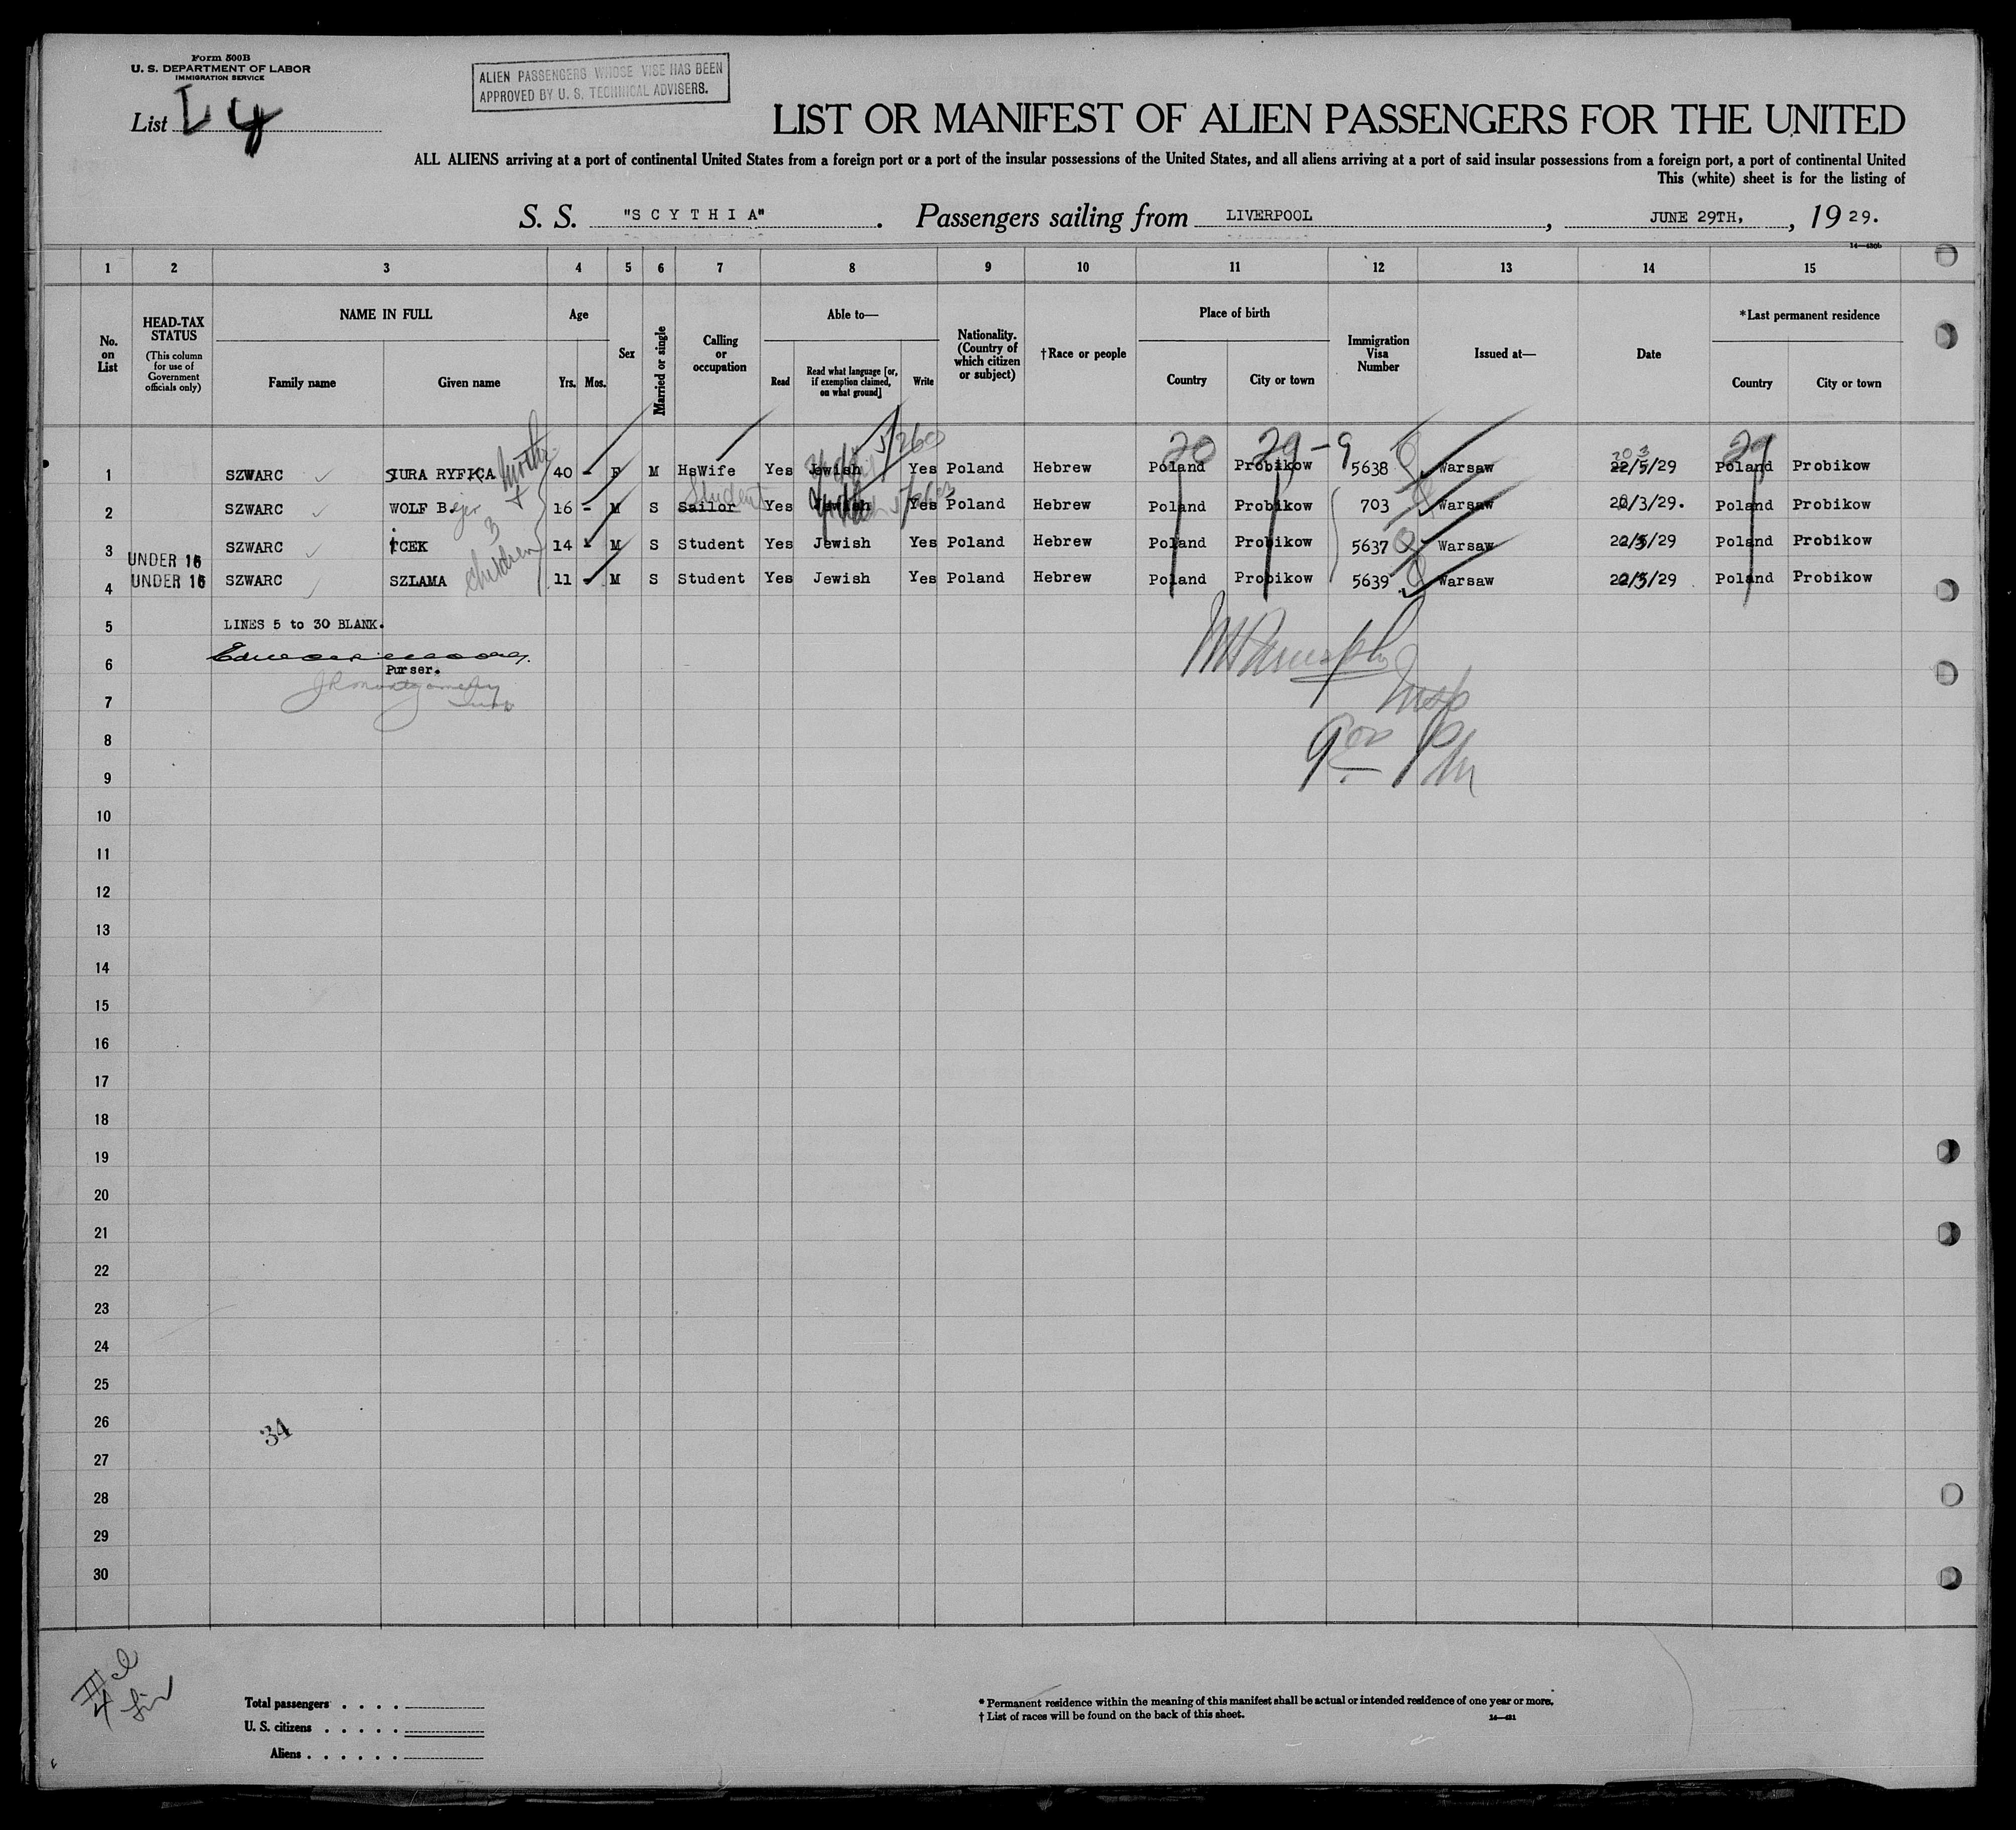 Form 500B
U. S. DEPARTMENT OF LABOR
IMMIGRATION SERVICE
ALIEN PASSENGERS WHOSE VISE HAS BEEN
APPROVED BY U. S. TECHNICAL ADVISERS.
List
LIST OR MANIFEST OF ALIEN PASSENGERS FOR THE UNITED
ALL ALIENS arriving at a port of continental United States from a foreign port or a port of the insular possessions of the United States, and all aliens arriving at a port of said insular possessions from a foreign port, a port of continental United
This (white) sheet is for the listing of
S. S. "SCYTHIA". Passengers sailing from LIVERPOOL, JUNE 29TH, , 19 29.
1 2 3 4 5 6 7 8 9 10 11 12 13 14 15
No. on List
HEAD-TAX STATUS
(This column for use of Government officials only)
NAME IN FULL
Family name Given name
Age
Yrs. Mos.
Sex
Married or single
Calling or occupation
Able to—
Read
Read what language [or, if exemption claimed, on what ground]
Write
Nationality. (Country of which citizen or subject)
†Race or people
Place of birth
Country City or town
Immigration Visa Number
Issued at—
Date
*Last permanent residence
Country City or town
20 29 - 9 29
5/260
Mother + 3 children
1 SZWARC SURA RYFKA 40 - F M HsWife Yes Jewish Yes Poland Hebrew Poland Probikow 5638 Warsaw 22/5/29 Poland Probikow
Student
2 SZWARC WOLF B. 16 - M S Sailor Yes Jewish Yes Poland Hebrew Poland Probikow 703 Warsaw 20/3/29. Poland Probikow
3 UNDER 16 SZWARC ICEK 14 - M S Student Yes Jewish Yes Poland Hebrew Poland Probikow 5637 Warsaw 22/5/29 Poland Probikow
4 UNDER 16 SZWARC SZLAMA 11 - M S Student Yes Jewish Yes Poland Hebrew Poland Probikow 5639 Warsaw 22/5/29 Poland Probikow
5 LINES 5 to 30 BLANK.
6 Purser.
7 J R Montgomery
Insp
8
9
10
11
12
13
14
15
16
17
18
19
20
21
22
23
24
25
26
34
27
28
29
30
Total passengers
U. S. citizens
Aliens
* Permanent residence within the meaning of this manifest shall be actual or intended residence of one year or more.
† List of races will be found on the back of this sheet.